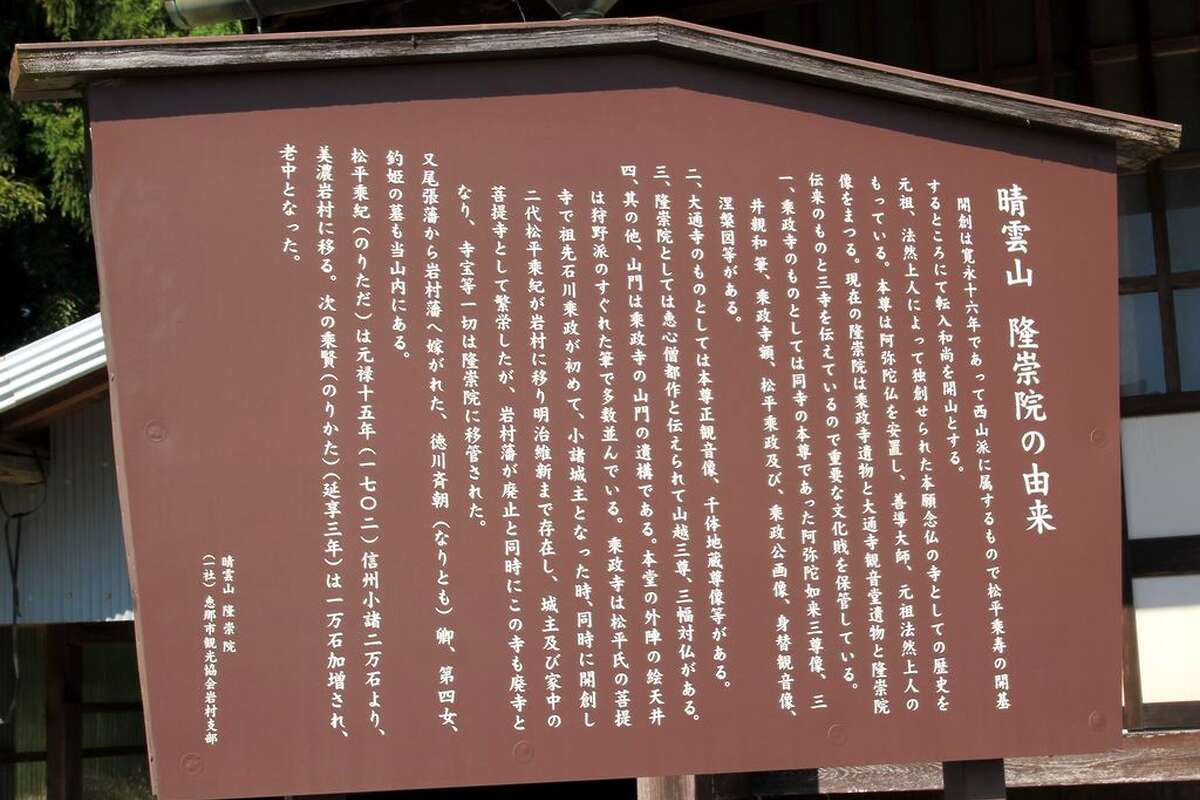 晴雲山 隆崇院の由来
開創は寛永十六年であって西山派に属するもので松平乗寿の開基
するところにて転入和尚を開山とする。
元祖、法然上人によって独創せられた本願念仏の寺としての歴史を
もっている。本尊は阿弥陀仏を安置し、善導大師、元祖法然上人の
像をまつる。現在の隆崇院は乗政寺遺物と大通寺観音堂遺物と隆崇院
伝来のものと三寺を伝えているので重要な文化財を保管している。
一、乗政寺のものとしては同寺の本尊であった阿弥陀如来三尊像、三
井親和筆、乗政寺額、松平乗政及び、乗政公画像、身替観音像、
涅槃図等がある。
二、大通寺のものとしては本尊正観音像、千体地蔵尊像等がある。
三、隆崇院としては恵心僧都作と伝えられて山越三尊、三幅対仏がある。
四、其の他、山門は乗政寺の山門の遺構である。本堂の外陣の絵天井
は狩野派のすぐれた筆で多数並んでいる。乗政寺は松平氏の菩提
寺で祖先石川乗政が初めて、小諸城主となった時、同時に開創し
二代松平乗紀が岩村に移り明治維新まで存在し、城主及び家中の
菩提寺として繁栄したが、岩村藩が廃止と同時にこの寺も廃寺と
なり、寺宝等一切は隆崇院に移管された。
又尾張藩から岩村藩へ嫁がれた、徳川斉朝（なりとも）卿、第四女、
釣姫の墓も当山内にある。
松平乗紀（のりただ）は元禄十五年（一七〇二）信州小諸二万石より、
美濃岩村に移る。次の乗賢（のりかた）（延享三年）は一万石加増され、
老中となった。
晴雲山 隆崇院
（一社）恵那市観光協会岩村支部